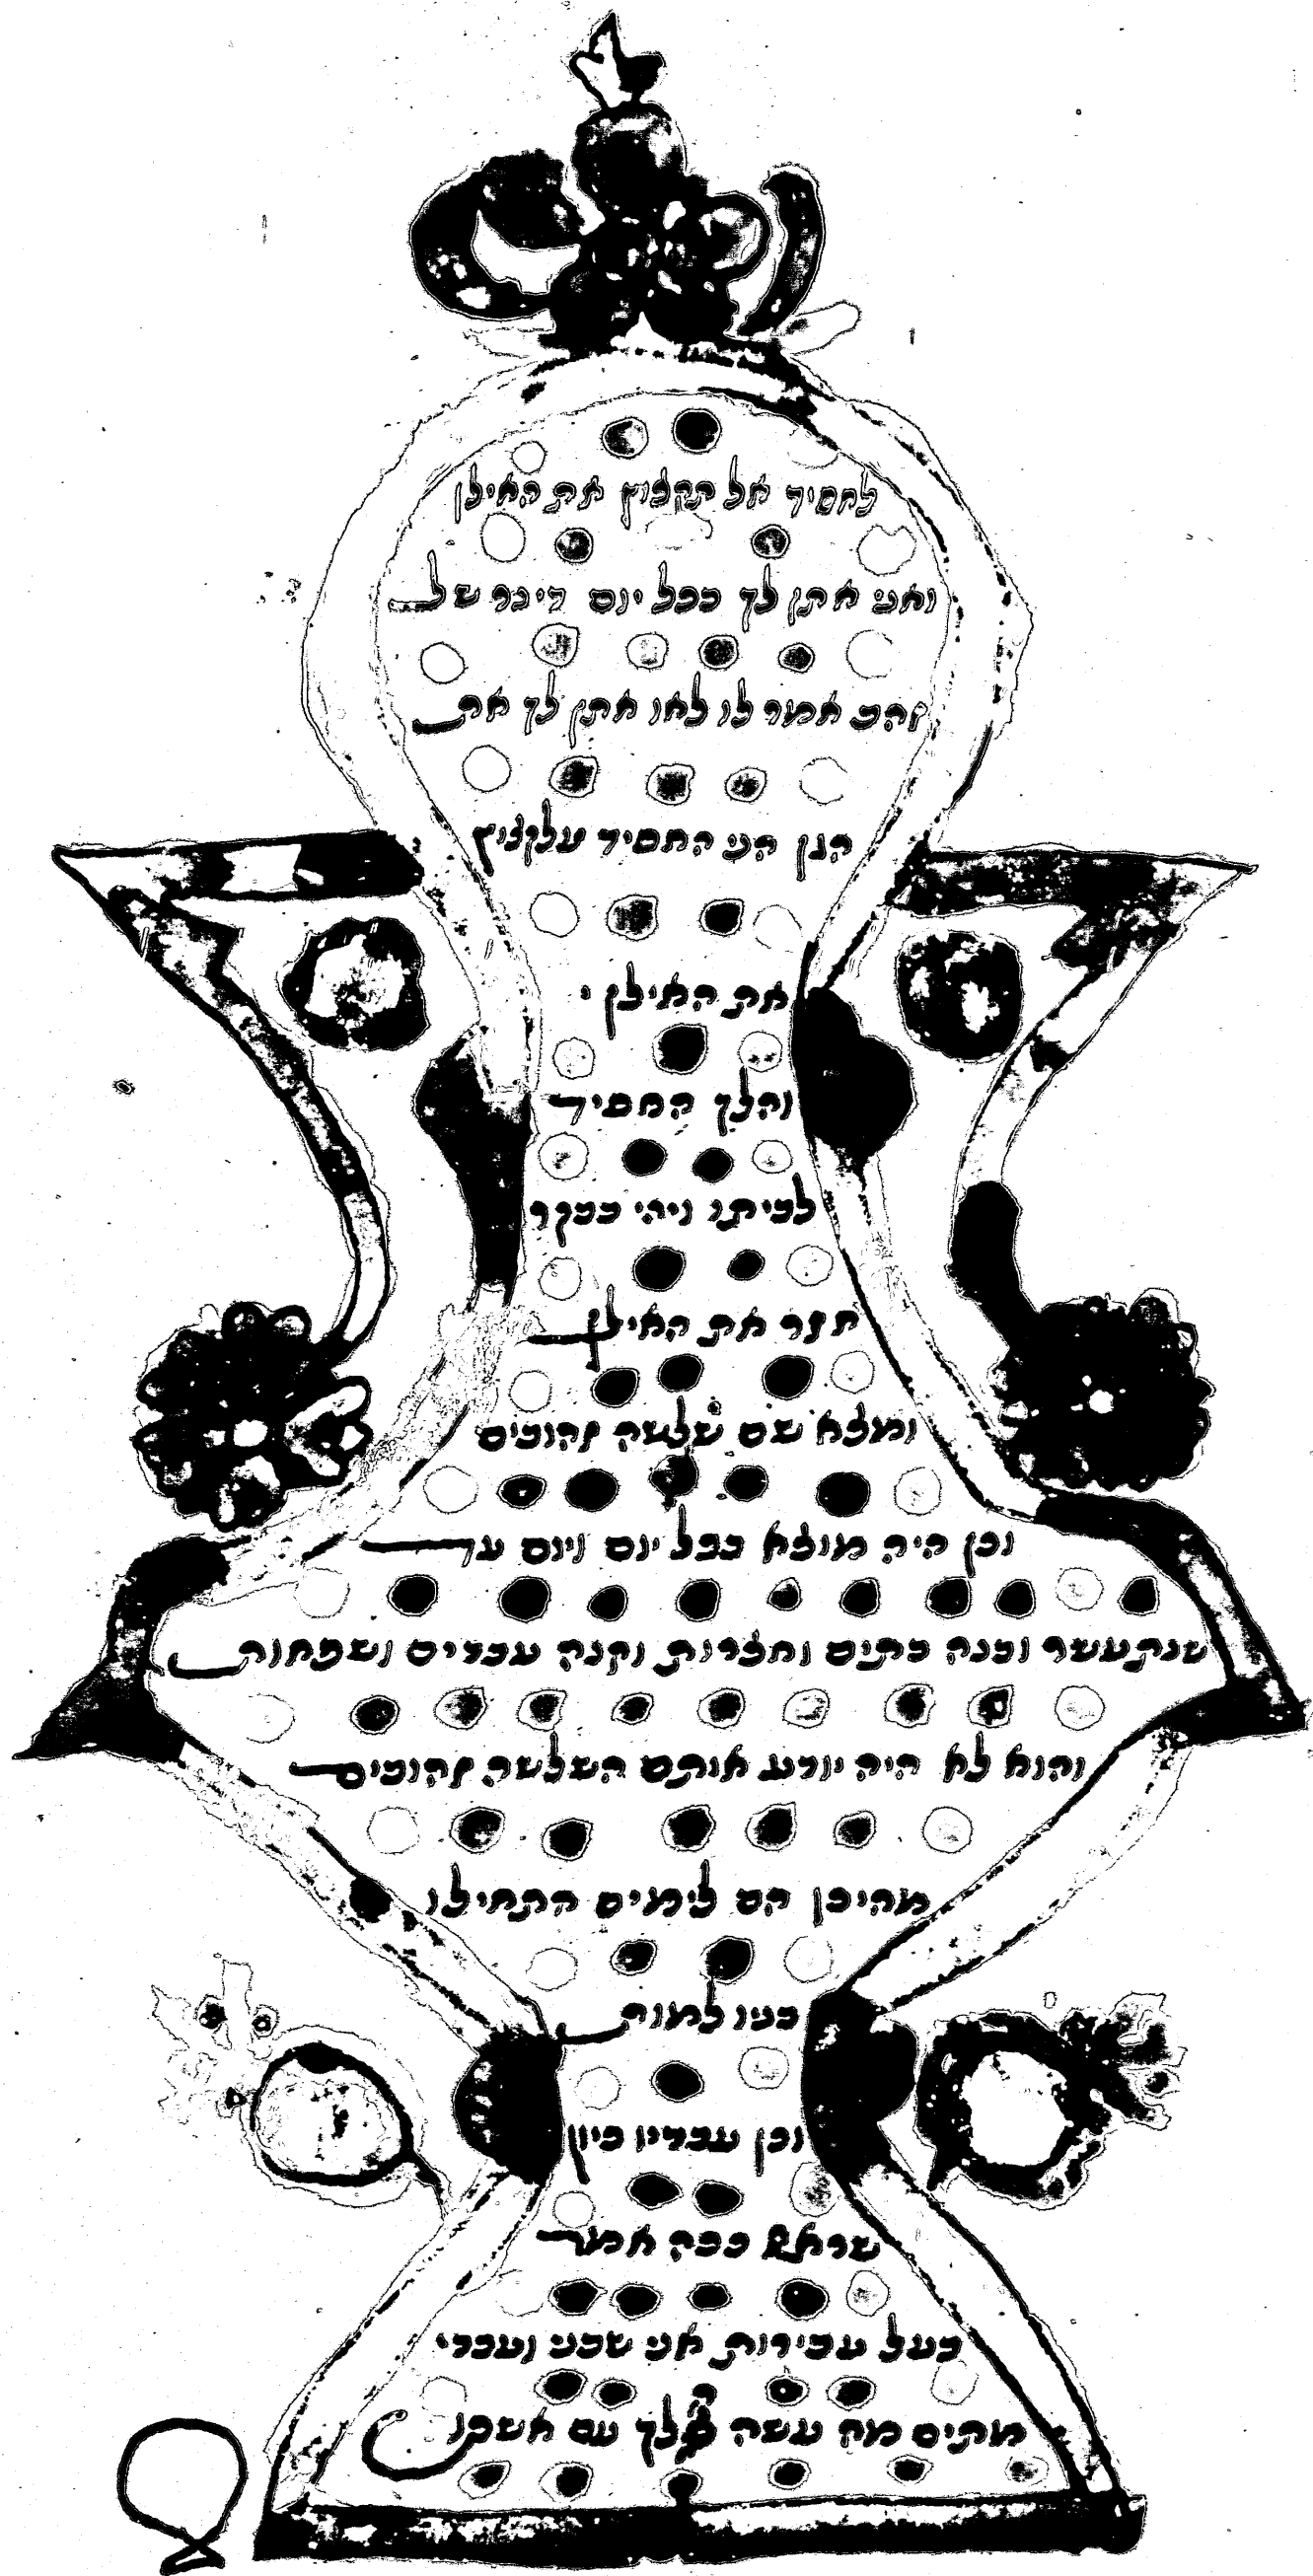 לחסיד אל תקצוץ את האילן
ואני אתן לך בכל יום דינר של
זהב אמר לו לאו אתן לך את
הגן הני החסיד
את האילן
והלך החסיד
לביתו ויהי בבקר
חזר את האילן
ומצא שם שלשה זהובים
וכן היה מוצא בכל יום ויום עד
שנתעשר ובנה בתים וחצרות וקנה עבדים ושפחות
והוא לא היה יודע אותם השלשה זהובים
מהיכן הם לימים התחילו
בניו למות
וכן עבדיו כיון
שראה ככה אמר
בעל עבירות אני שבני ועבדי
מתים מה עשה הלך עם אשתו